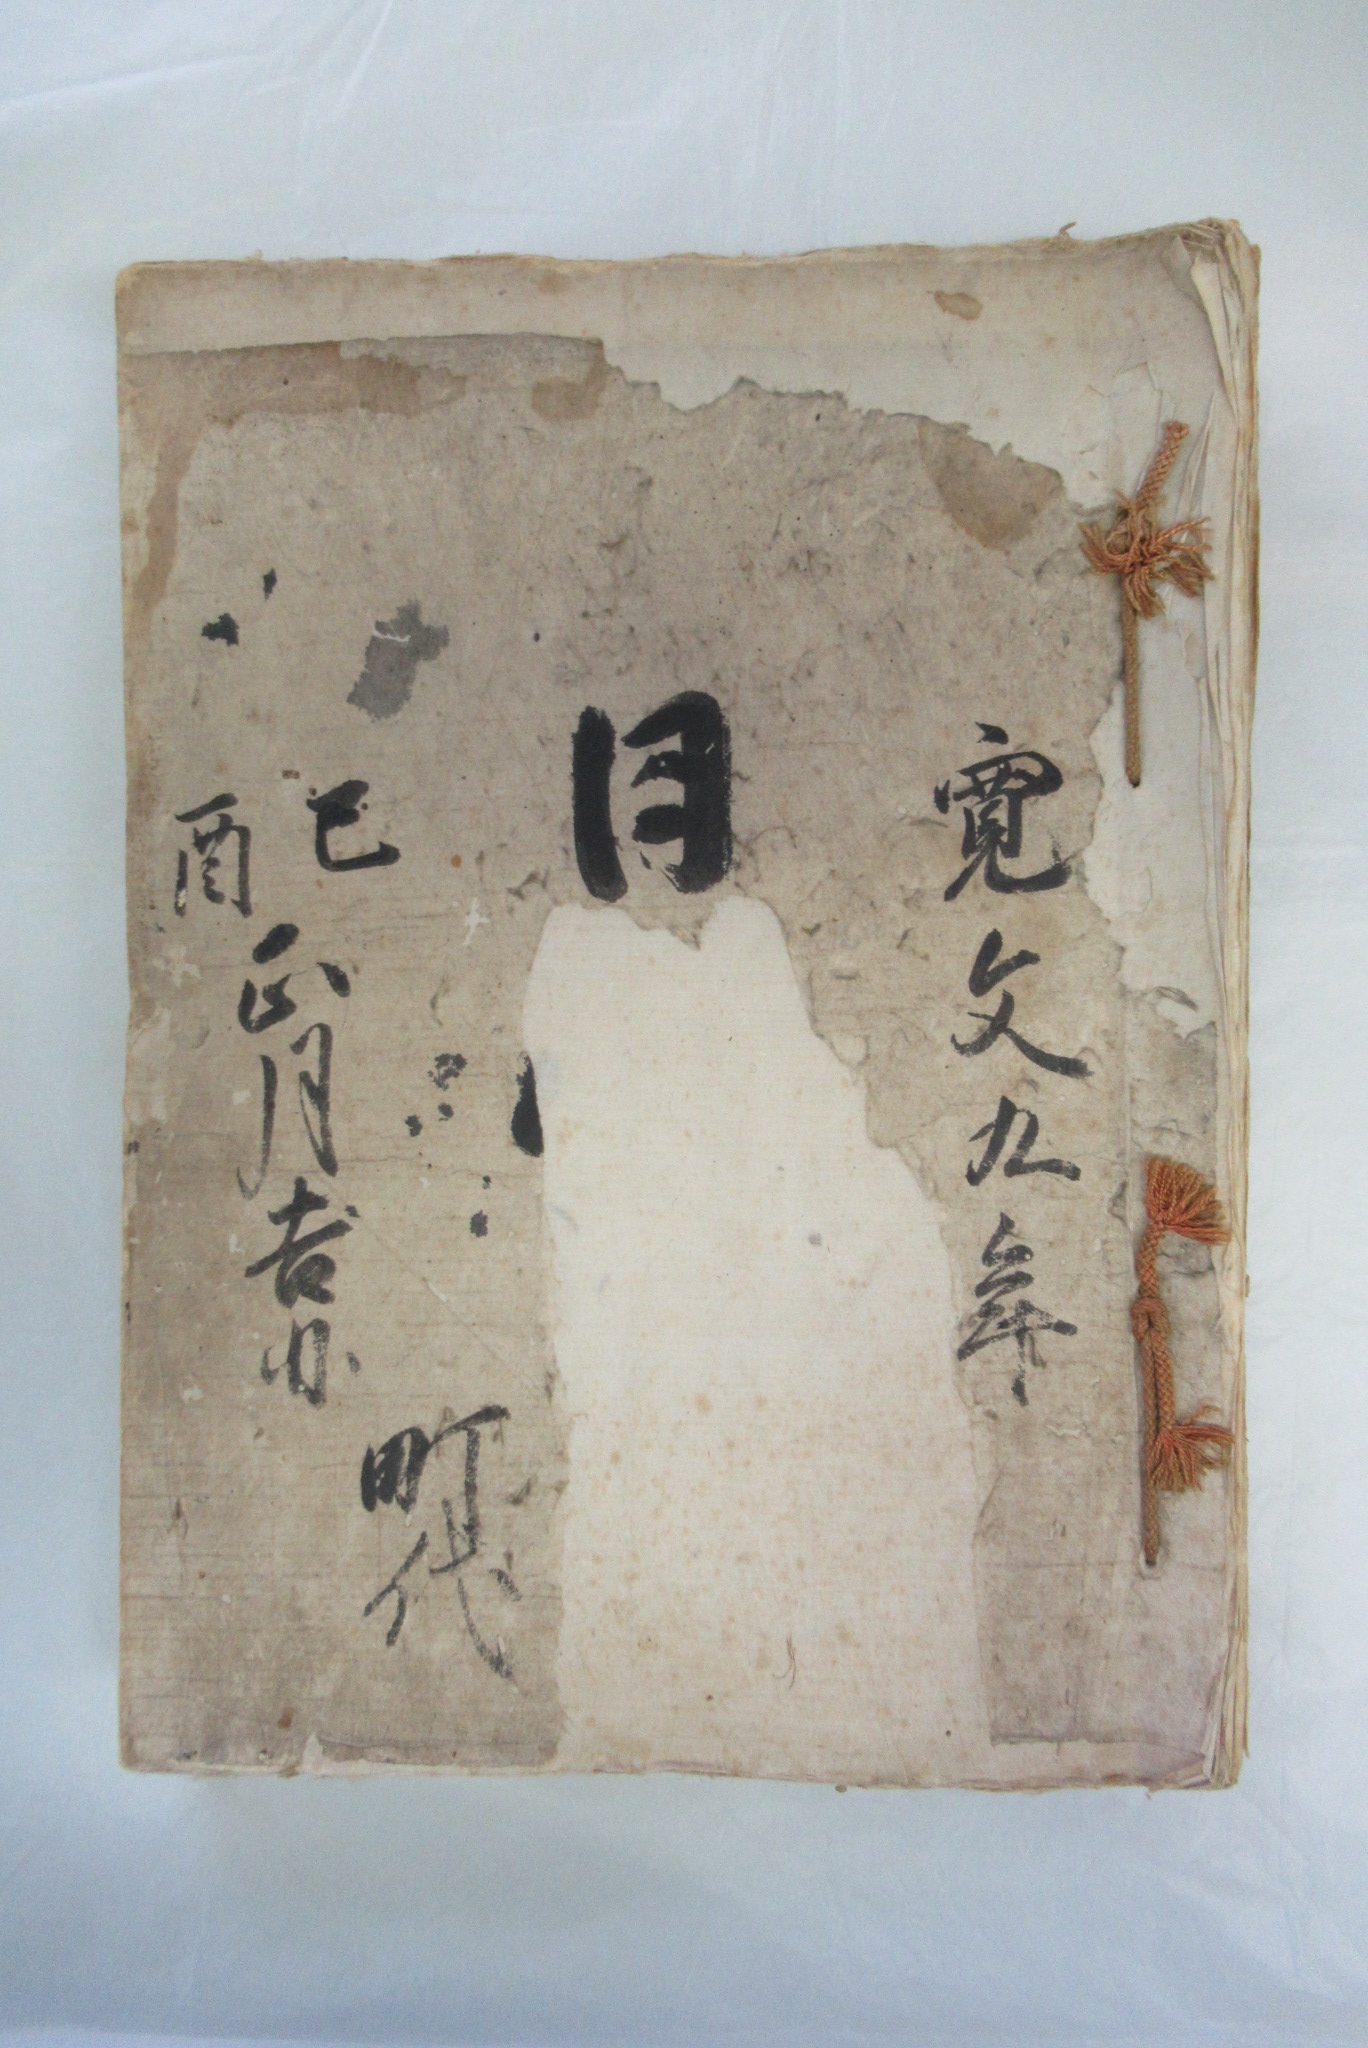 寛文九年
日
己酉
正月吉日
町代